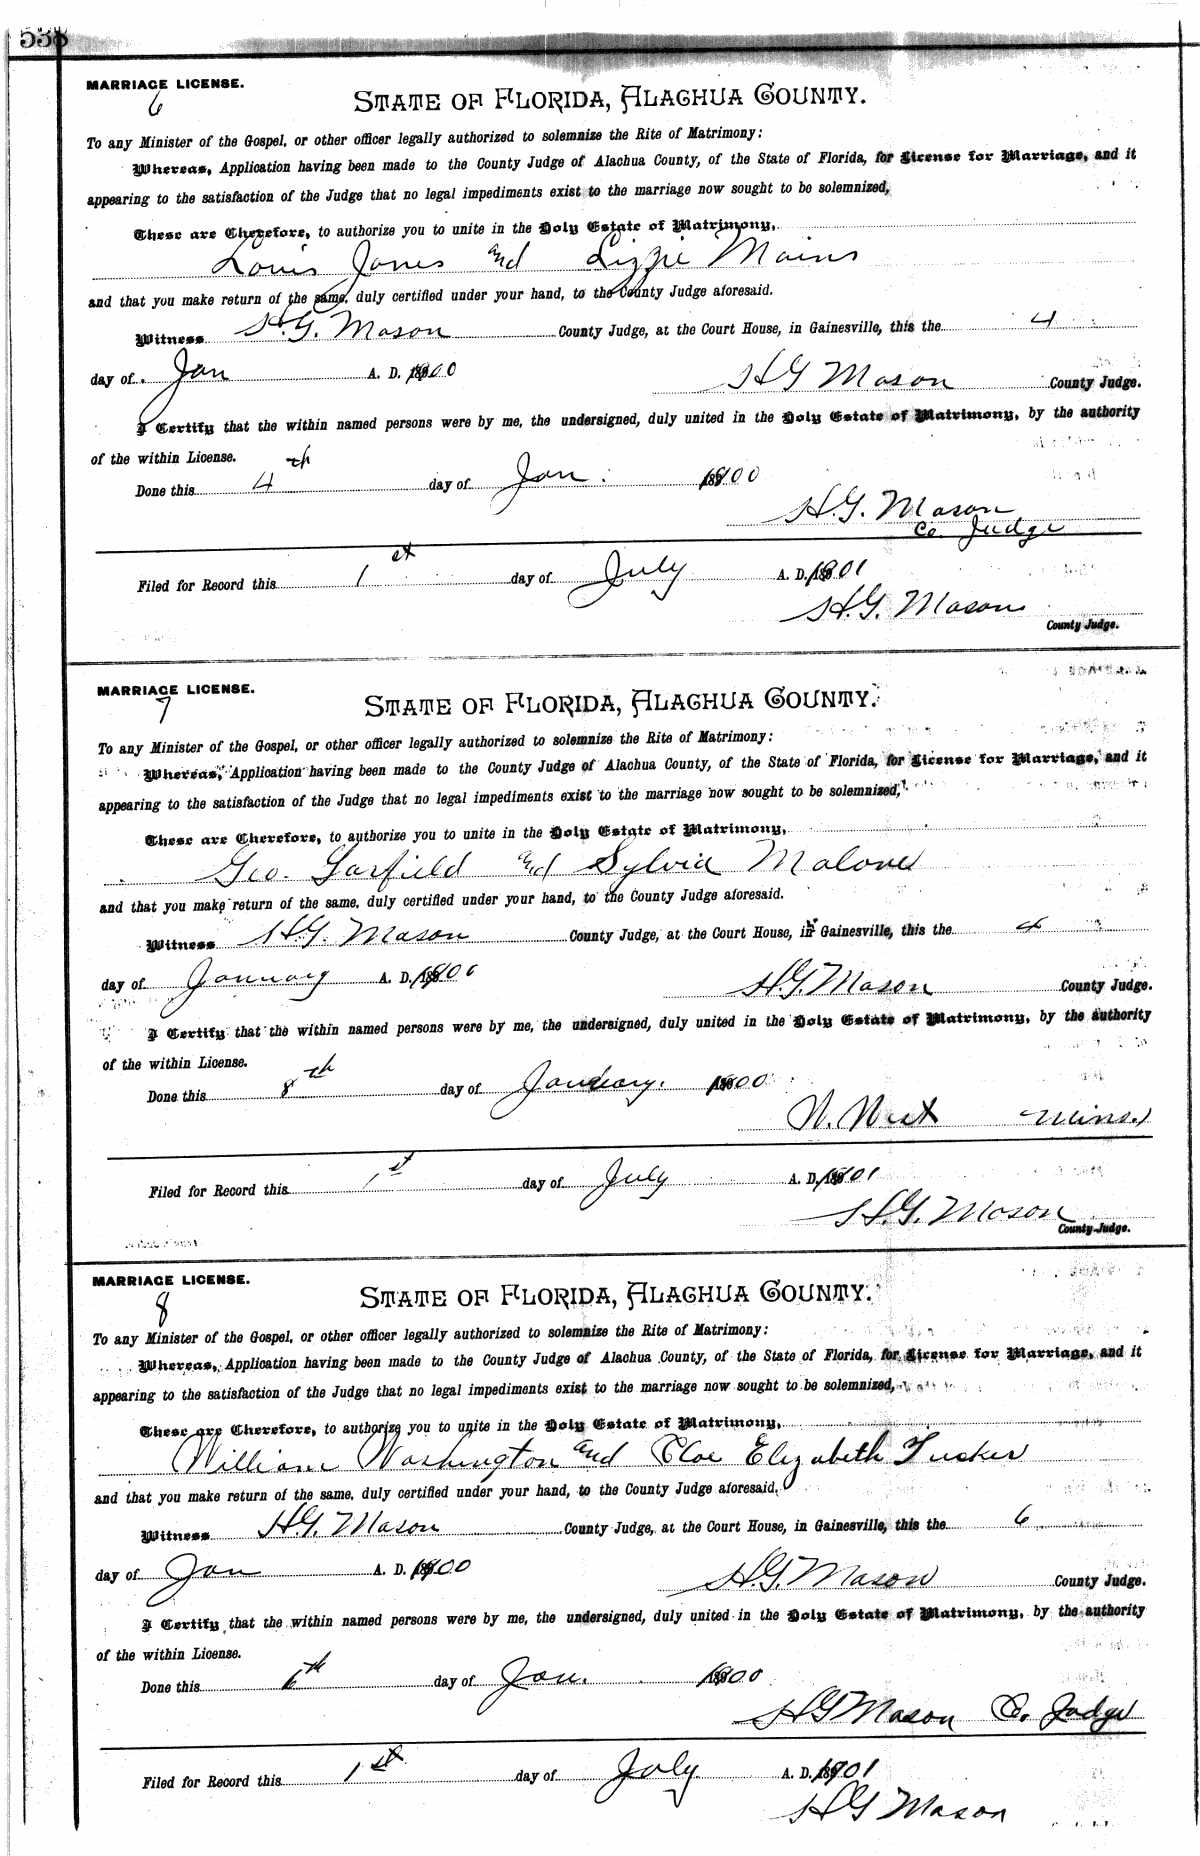 538
MARRIAGE LICENSE.
6
STATE OF FLORIDA, ALACHUA COUNTY.
To any Minister of the Gospel, or other officer legally authorized to solemnize the Rite of Matrimony:
Whereas, Application having been made to the County Judge of Alachua County, of the State of Florida, for License for Marriage, and it
appearing to the satisfaction of the Judge that no legal impediments exist to the marriage now sought to be solemnized,
These are Therefore, to authorize you to unite in the Holy Estate of Matrimony,
Louis Jones and Lizzie Mains
and that you make return of the same, duly certified under your hand, to the County Judge aforesaid.
Witness H.G. Mason County Judge, at the Court House, in Gainesville, this the 4
day of Jan A. D. 1900 H G Mason County Judge.
I Certify that the within named persons were by me, the undersigned, duly united in the Holy Estate of Matrimony, by the authority
of the within License.
Done this 4th day of Jan. 1900
H.G. Mason
Co. Judge
Filed for Record this 1st day of July A. D. 1901
H.G. Mason
County Judge.
MARRIAGE LICENSE.
7
STATE OF FLORIDA, ALACHUA COUNTY.
To any Minister of the Gospel, or other officer legally authorized to solemnize the Rite of Matrimony:
Whereas, Application having been made to the County Judge of Alachua County, of the State of Florida, for License for Marriage, and it
appearing to the satisfaction of the Judge that no legal impediments exist to the marriage now sought to be solemnized,
These are Therefore, to authorize you to unite in the Holy Estate of Matrimony,
Geo. Garfield and Sylvia Malone
and that you make return of the same, duly certified under your hand, to the County Judge aforesaid.
Witness H.G. Mason County Judge, at the Court House, in Gainesville, this the 4
day of January A. D. 1900 H.G. Mason County Judge.
I Certify that the within named persons were by me, the undersigned, duly united in the Holy Estate of Matrimony, by the authority
of the within License.
Done this 8th day of January. 1900
N. (Mins.)
Filed for Record this 1st day of July A. D. 1901
H.G. Mason
County Judge.
MARRIAGE LICENSE.
8
STATE OF FLORIDA, ALACHUA COUNTY.
To any Minister of the Gospel, or other officer legally authorized to solemnize the Rite of Matrimony:
Whereas, Application having been made to the County Judge of Alachua County, of the State of Florida, for License for Marriage, and it
appearing to the satisfaction of the Judge that no legal impediments exist to the marriage now sought to be solemnized,
These are Therefore, to authorize you to unite in the Holy Estate of Matrimony,
William Washington and Cloe Elizabeth Tucker
and that you make return of the same, duly certified under your hand, to the County Judge aforesaid.
Witness H.G. Mason County Judge, at the Court House, in Gainesville, this the 6
day of Jan A. D. 1900 H.G. Mason County Judge.
I Certify that the within named persons were by me, the undersigned, duly united in the Holy Estate of Matrimony, by the authority
of the within License.
Done this 6th day of Jan. 1900
H G Mason Co. Judge
Filed for Record this 1st day of July A. D. 1901
H G Mason